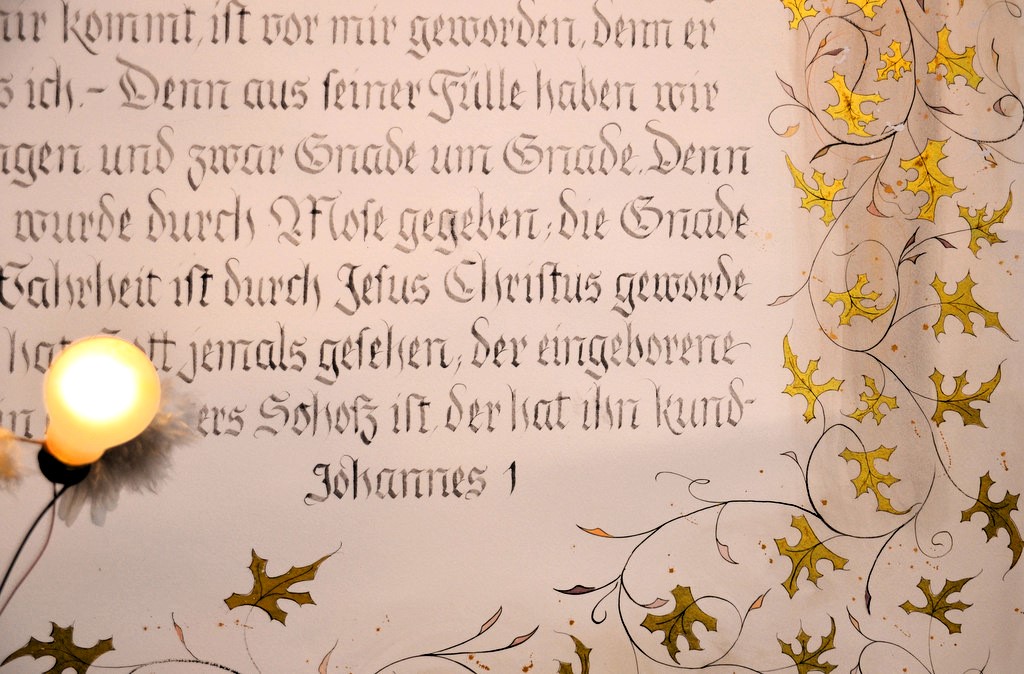 mir kommt, ist vor mir geworden, denn er
ich.- Denn aus seiner Fülle haben wir
und zwar Gnade um Gnade. Denn
wurde durch Mose gegeben; die Gnade
Wahrheit ist durch Jesus Christus geworde
hat Gott jemals gesehen; der eingeborene
Schoß ist, der hat ihn kund-
Johannes 1